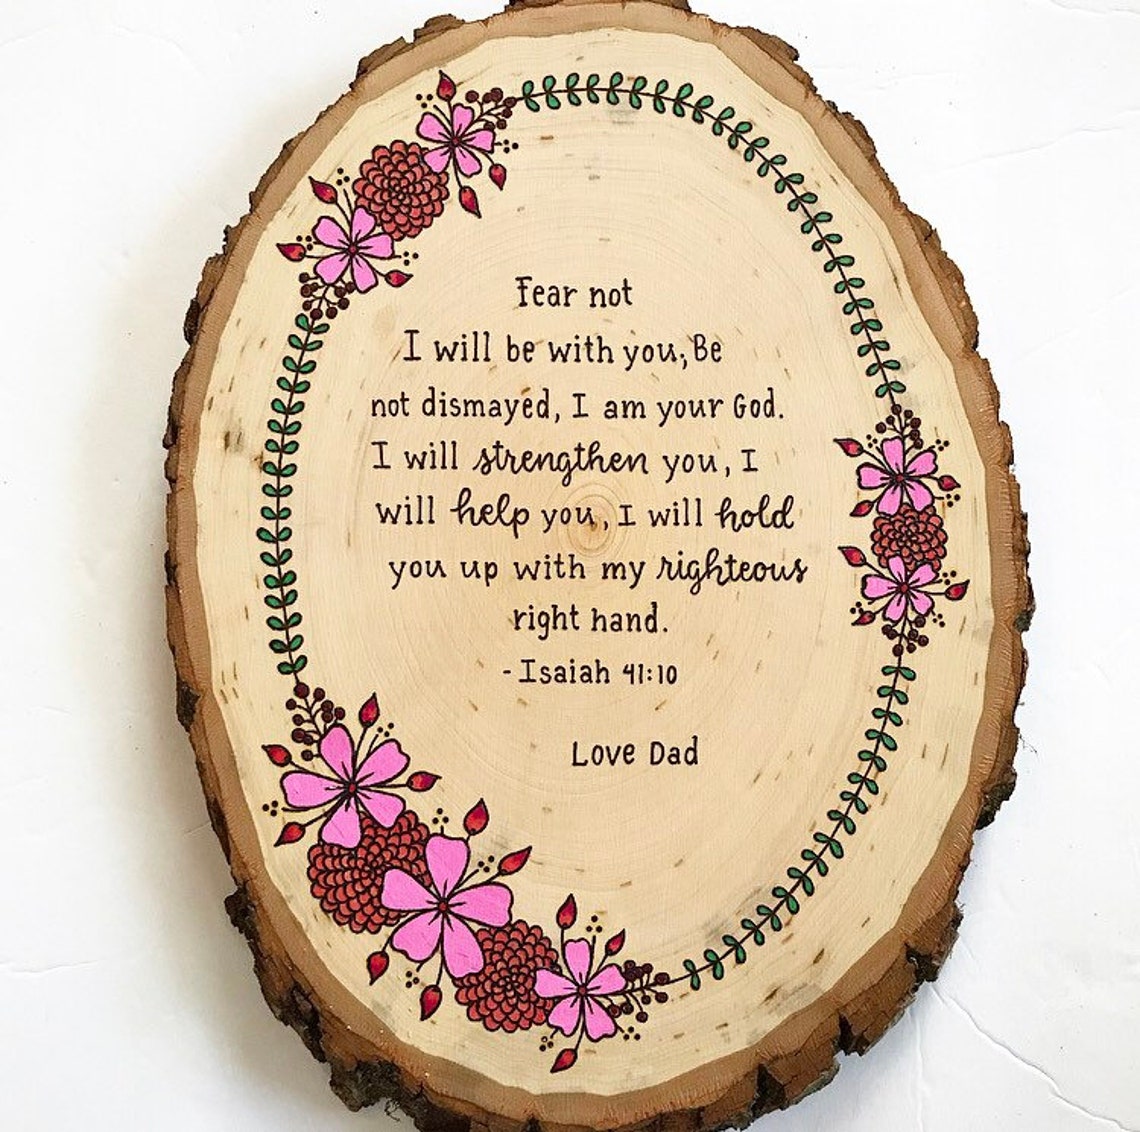 Fear not
I will be with you, Be
not dismayed, I am your God.
I will strengthen you, I
will help you, I will hold
you up with my righteous
right hand.
- Isaiah 41:10
Love Dad